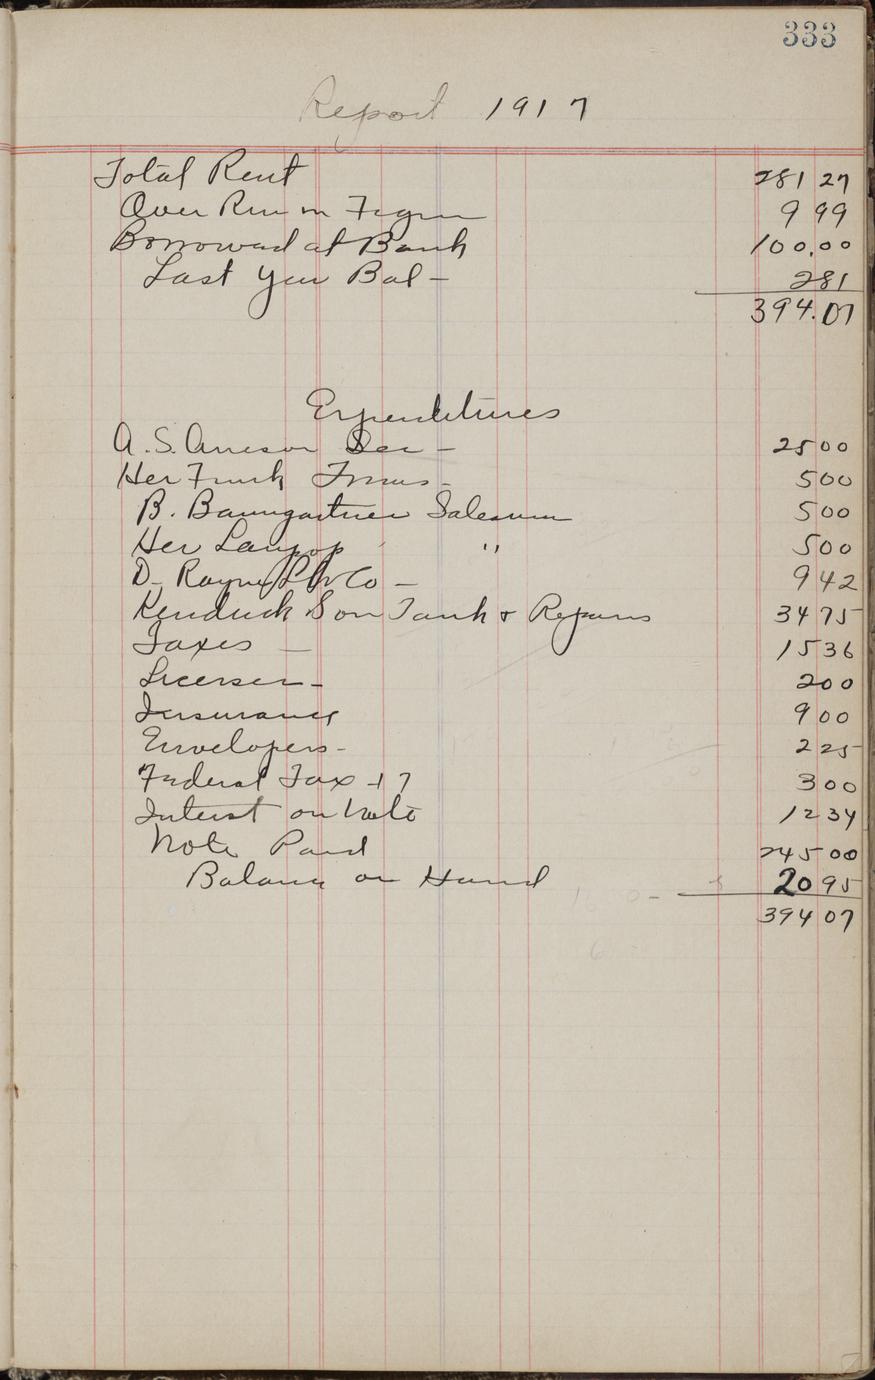 333
Report 1917
Total Rent 281 27
Over Run on 9 99
Borrowed at Bank 100.00
Last Year Bal - 281
394.07
Expenditures
A. S. Arneson Sec - 25 00
Her Frank 5 00
B. Baumgartner Salesman 5 00
Her " 5 00
D. Co - 9 42
Kendrick Son Tank & Repairs 34 75
Taxes - 15 36
Licenser - 2 00
Insurance 9 00
Envelopers - 2 25
Federal Tax - 17 3 00
Interst on Note 12 34
Note Paid 245 00
Balance on Hand 20 95
394 07